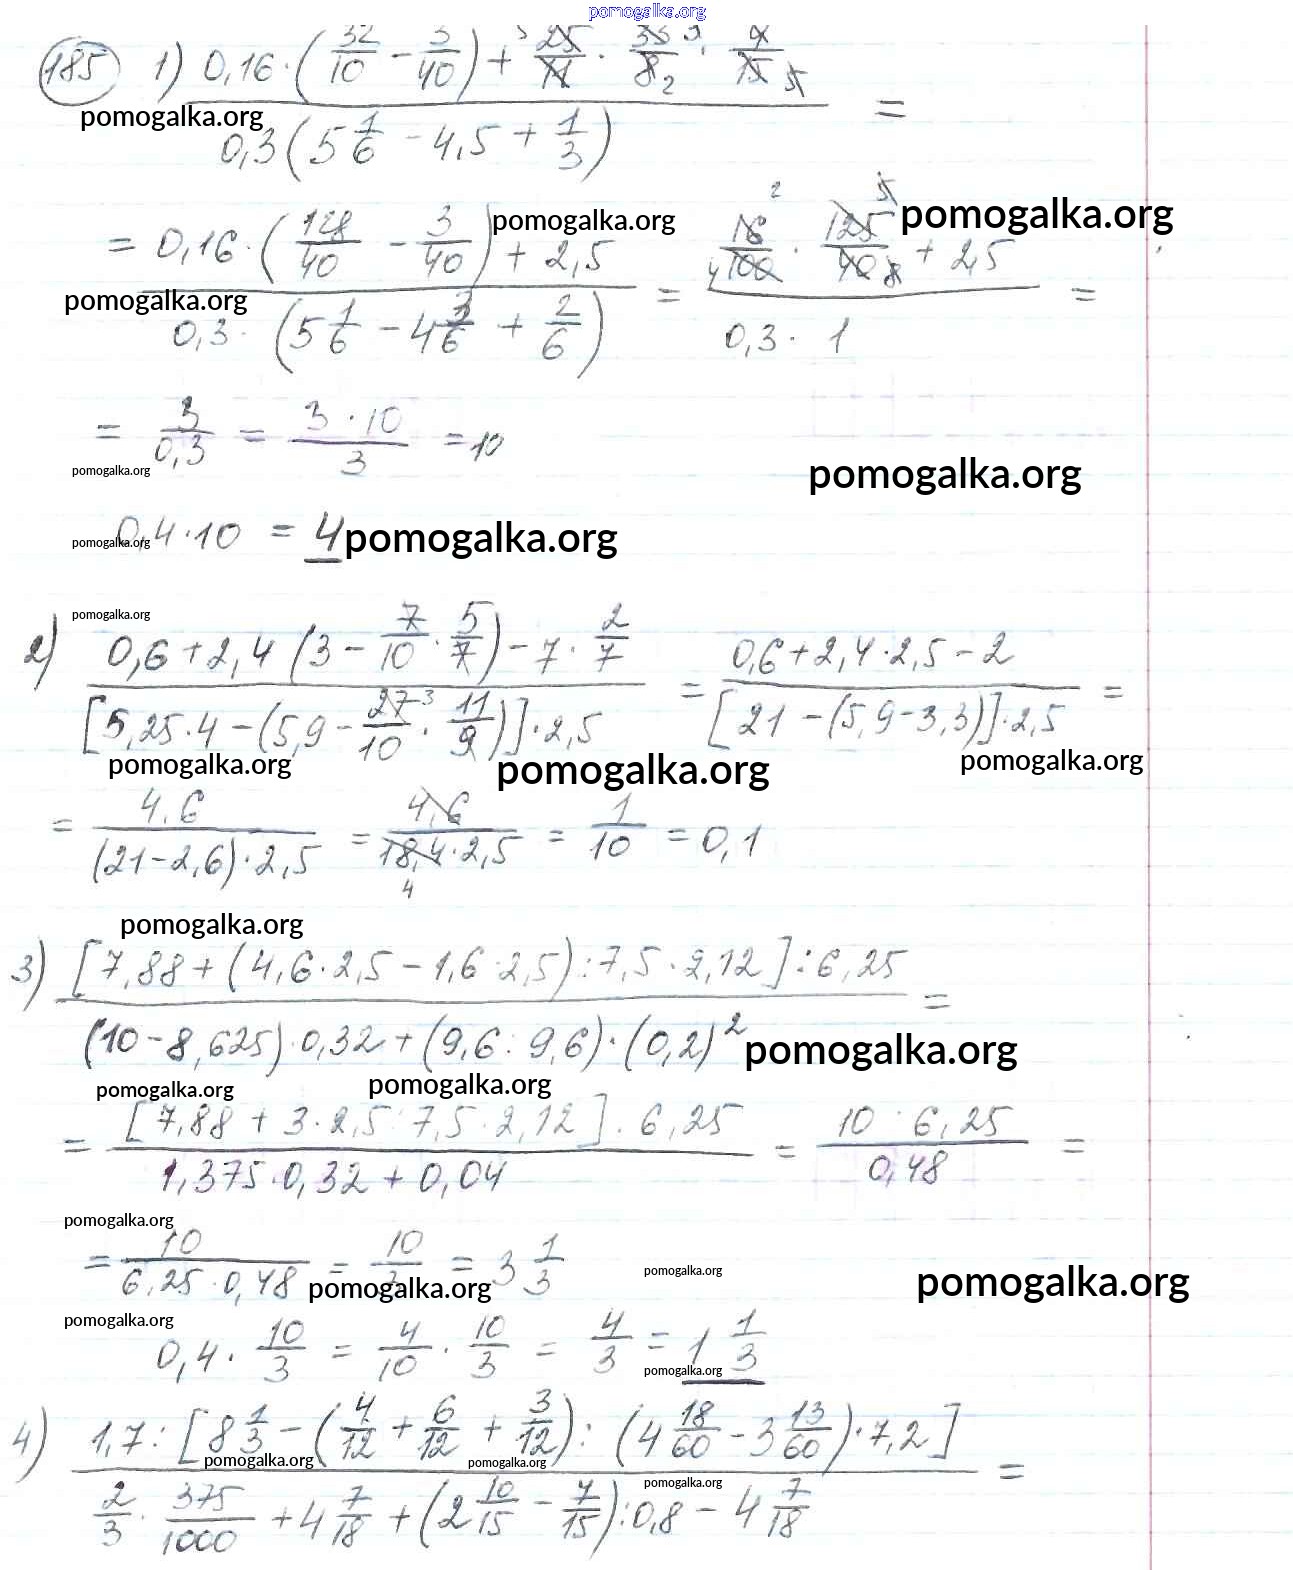 pomogalka.org
185 1) (0,16·(32/10 - 3/40) + 25/14 · 35/8 · 4/15) / (0,3(5 1/6 - 4,5 + 1/3)) =
pomogalka.org
= (0,16·(128/40 - 3/40) + 2,5) / (0,3·(5 1/6 - 4 3/6 + 2/6)) = (16/100 · 125/40 + 2,5) / (0,3 · 1) =
pomogalka.org pomogalka.org
pomogalka.org
= 3/0,3 = (3·10)/3 = 10
pomogalka.org pomogalka.org
0,4·10 = 4
pomogalka.org pomogalka.org
pomogalka.org
2) (0,6+2,4(3 - 7/10 · 5/7) - 7·2/7) / ([5,25·4-(5,9 - 27/10 · 11/9)]·2,5) = (0,6+2,4·2,5-2) / ([21-(5,9-3,3)]·2,5) =
pomogalka.org pomogalka.org pomogalka.org
= 4,6/((21-2,6)·2,5) = 4,6/(18,4·2,5) = 1/10 = 0,1
pomogalka.org
3) ([7,88+(4,6·2,5-1,6·2,5):7,5·2,12]:6,25) / ((10-8,625)·0,32+(9,6:9,6)·(0,2)²) =
pomogalka.org
pomogalka.org pomogalka.org
= ([7,88+3·2,5:7,5·2,12]:6,25) / (1,375·0,32+0,04) = (10:6,25)/0,48 =
pomogalka.org
= 10/(6,25·0,48) = 10/3 = 3 1/3
pomogalka.org pomogalka.org pomogalka.org
pomogalka.org
0,4·10/3 = 4/10 · 10/3 = 4/3 = 1 1/3
pomogalka.org
4) (1,7:[8 1/3 - (4/12 + 6/12 + 3/12):(4 18/60 - 3 13/60)·7,2]) / (2/3 · 375/1000 + 4 7/18 + (2 10/15 - 7/15):0,8 - 4 7/18) =
pomogalka.org pomogalka.org
pomogalka.org